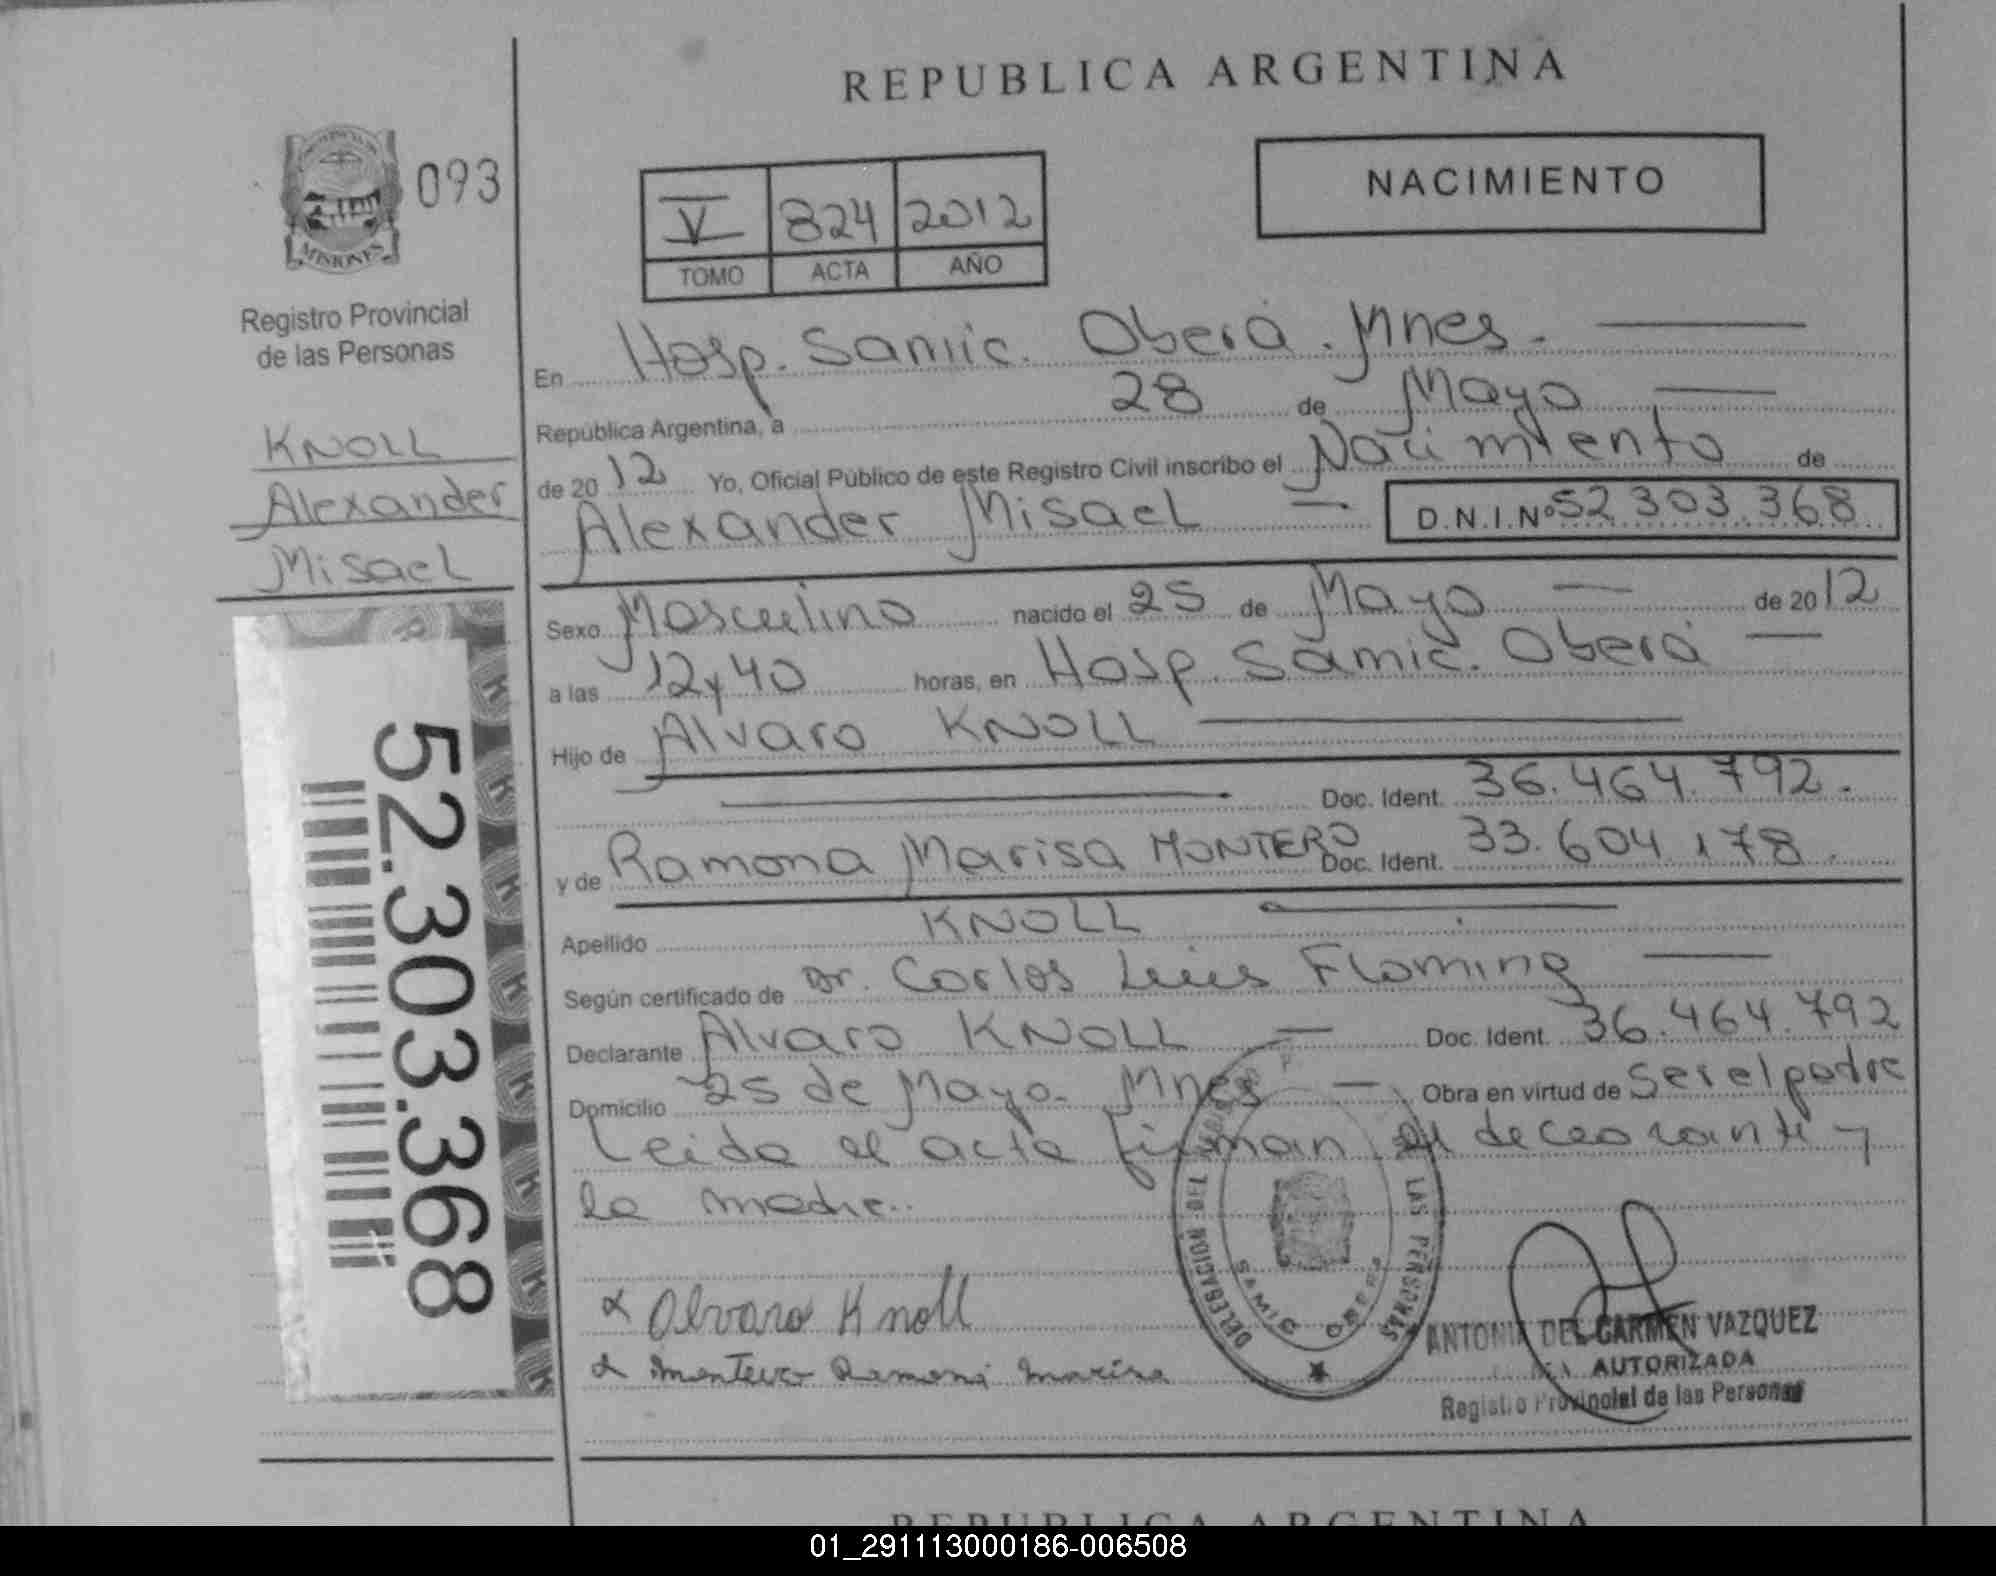 REPUBLICA ARGENTINA
MISIONES
093
Registro Provincial
de las Personas
KNOLL
Alexander
Misael
52.303.368
NACIMIENTO
V 824 2012
TOMO ACTA AÑO
En Hosp. Samic. Oberá. Mnes.
República Argentina, a 28 de Mayo
de 2012 Yo, Oficial Público de este Registro Civil inscribo el Nacimiento de
Alexander Misael D.N.I.Nº 52 303 368
Sexo Masculino nacido el 25 de Mayo de 2012
a las 12 y 40 horas, en Hosp. Samic. Oberá
Hijo de Alvaro KNOLL
Doc. Ident. 36.464.792.
y de Ramona Marisa MONTERO Doc. Ident. 33.604.178.
Apellido KNOLL
Según certificado de Dr. Carlos Luis Floming
Declarante Alvaro KNOLL Doc. Ident. 36.464.792
Domicilio 25 de Mayo. Mnes Obra en virtud de ser el padre
Leida el acta firman el declarante y
la madre.
DELEGACION DEL LAS PERSONAS
SAMIC OBERA
x Alvaro Knoll
x Montero Ramona Marisa
ANTONIA DEL CARMEN VAZQUEZ
AUTORIZADA
Registro Provincial de las Personas
REPUBLICA ARGENTINA
01_291113000186-006508